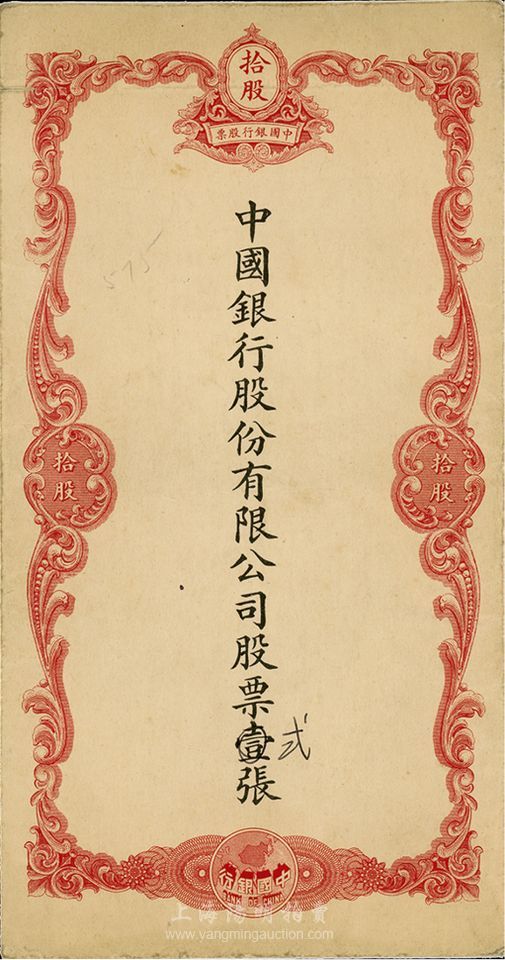 拾股
中國銀行股票
575
中國銀行股份有限公司股票壹張
弍
拾股
拾股
中國銀行
BANK OF CHINA
上海陽明拍賣
www.yangmingauction.com